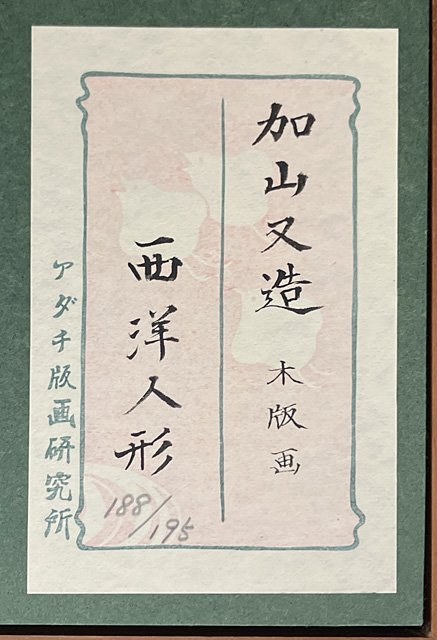 加山又造 木版画
西洋人形
188/195
アダチ版画研究所